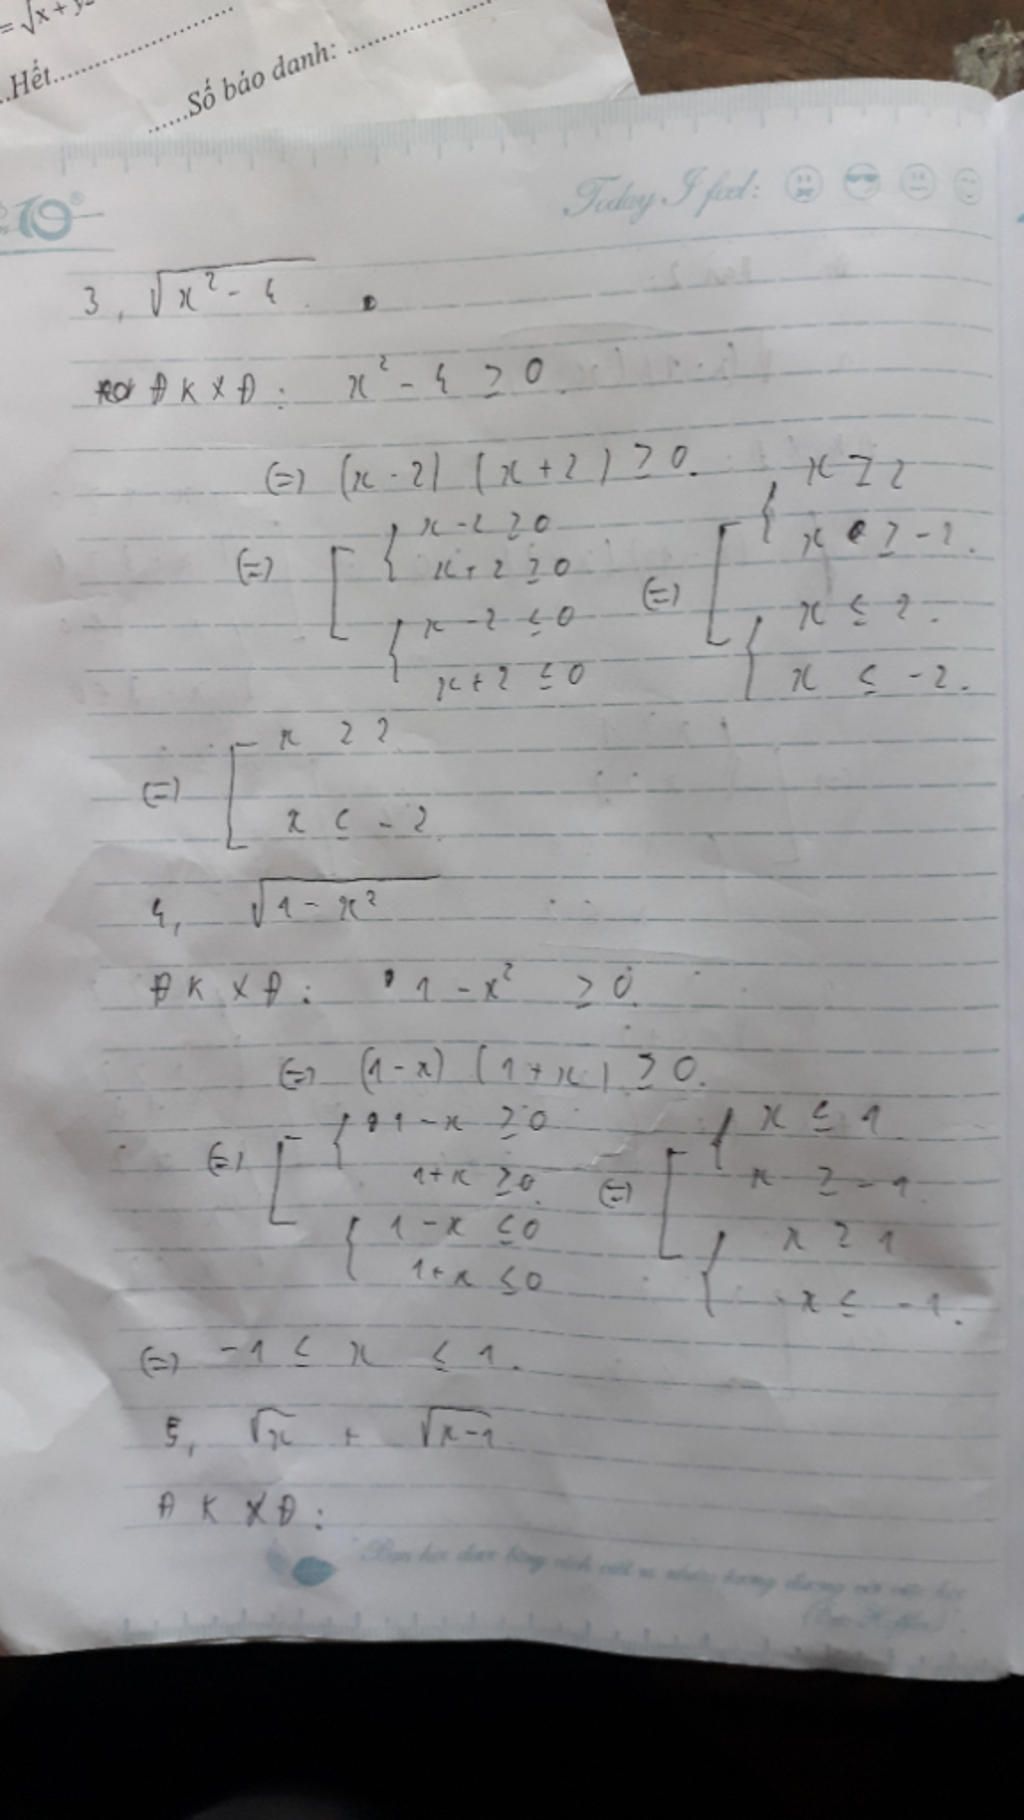 = √x + y
..Hết..................
......Số báo danh: ..................
Today I feel:
3, √x² - 4
ĐKXĐ: x² - 4 ≥ 0
(=) (x - 2) (x + 2) ≥ 0.
(=) [ { x - 2 ≥ 0 (=) [ { x ≥ 2
x + 2 ≥ 0 x ≥ -2.
{ x - 2 ≤ 0 { x ≤ 2.
x + 2 ≤ 0 x ≤ -2.
(=) [ x ≥ 2
x ≤ -2
4, √1 - x²
ĐKXĐ: 1 - x² ≥ 0
(=) (1 - x) (1 + x) ≥ 0.
(=) [ { 1 - x ≥ 0 (=) [ { x ≤ 1
1 + x ≥ 0. x ≥ -1.
{ 1 - x ≤ 0 { x ≥ 1
1 + x ≤ 0 x ≤ -1.
(=) -1 ≤ x ≤ 1.
5, √x + √x-1
ĐKXĐ: